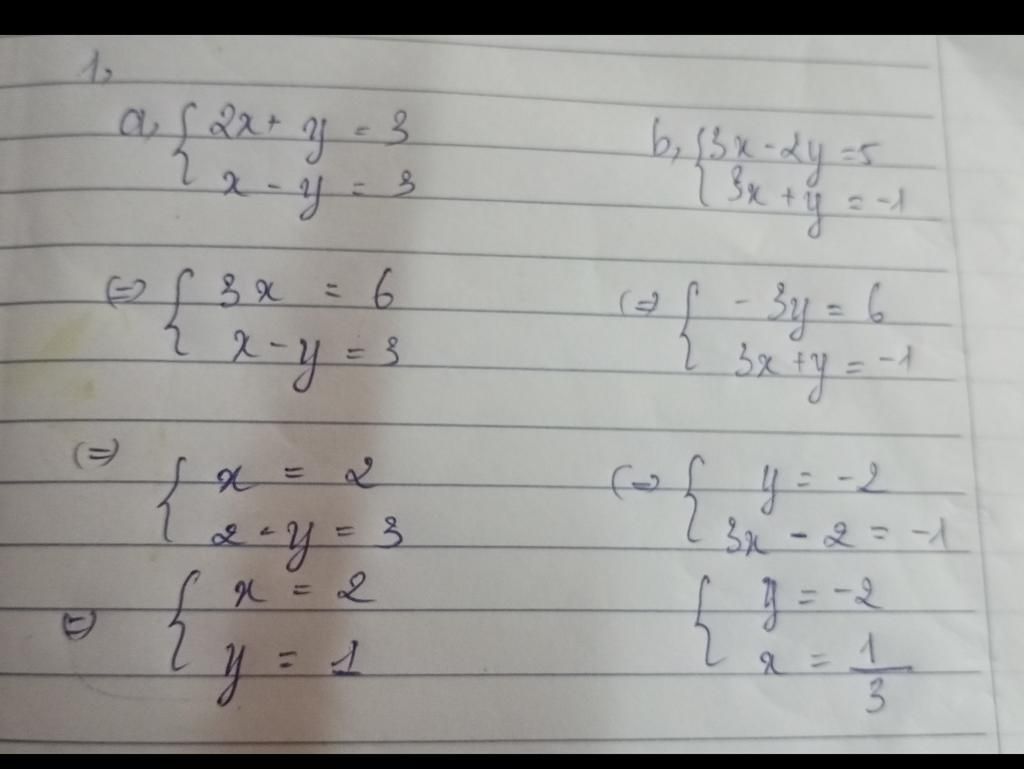 1,
a, { 2x + y = 3
x - y = 3
(=) { 3x = 6
x - y = 3
(=) { x = 2
2 - y = 3
(=) { x = 2
y = 1
b, { 3x - 2y = 5
3x + y = -1
(=) { - 3y = 6
3x + y = -1
(=) { y = -2
3x - 2 = -1
{ y = -2
x = 1/3